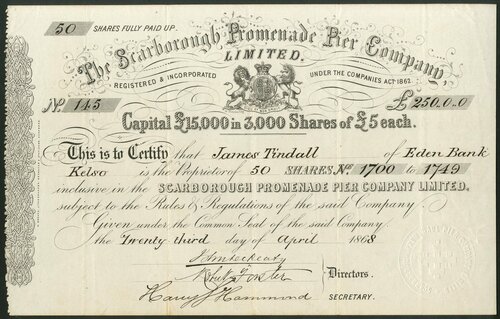 50 SHARES FULLY PAID UP.
The Scarborough Promenade Pier Company,
LIMITED.
REGISTERED & INCORPORATED UNDER THE COMPANIES ACT 1862.
No. 145 £250.0.0
Capital £15,000 in 3,000 Shares of £5 each.
This is to Certify that James Tindall of Eden Bank
Kelso is the Proprietor of 50 SHARES, No. 1700 to 1749
inclusive in the SCARBOROUGH PROMENADE PIER COMPANY LIMITED,
subject to the Rules & Regulations of the said Company.
Given under the Common Seal of the said Company,
the Twenty third day of April 1868
Forster Directors.
Harry J Hammond SECRETARY.